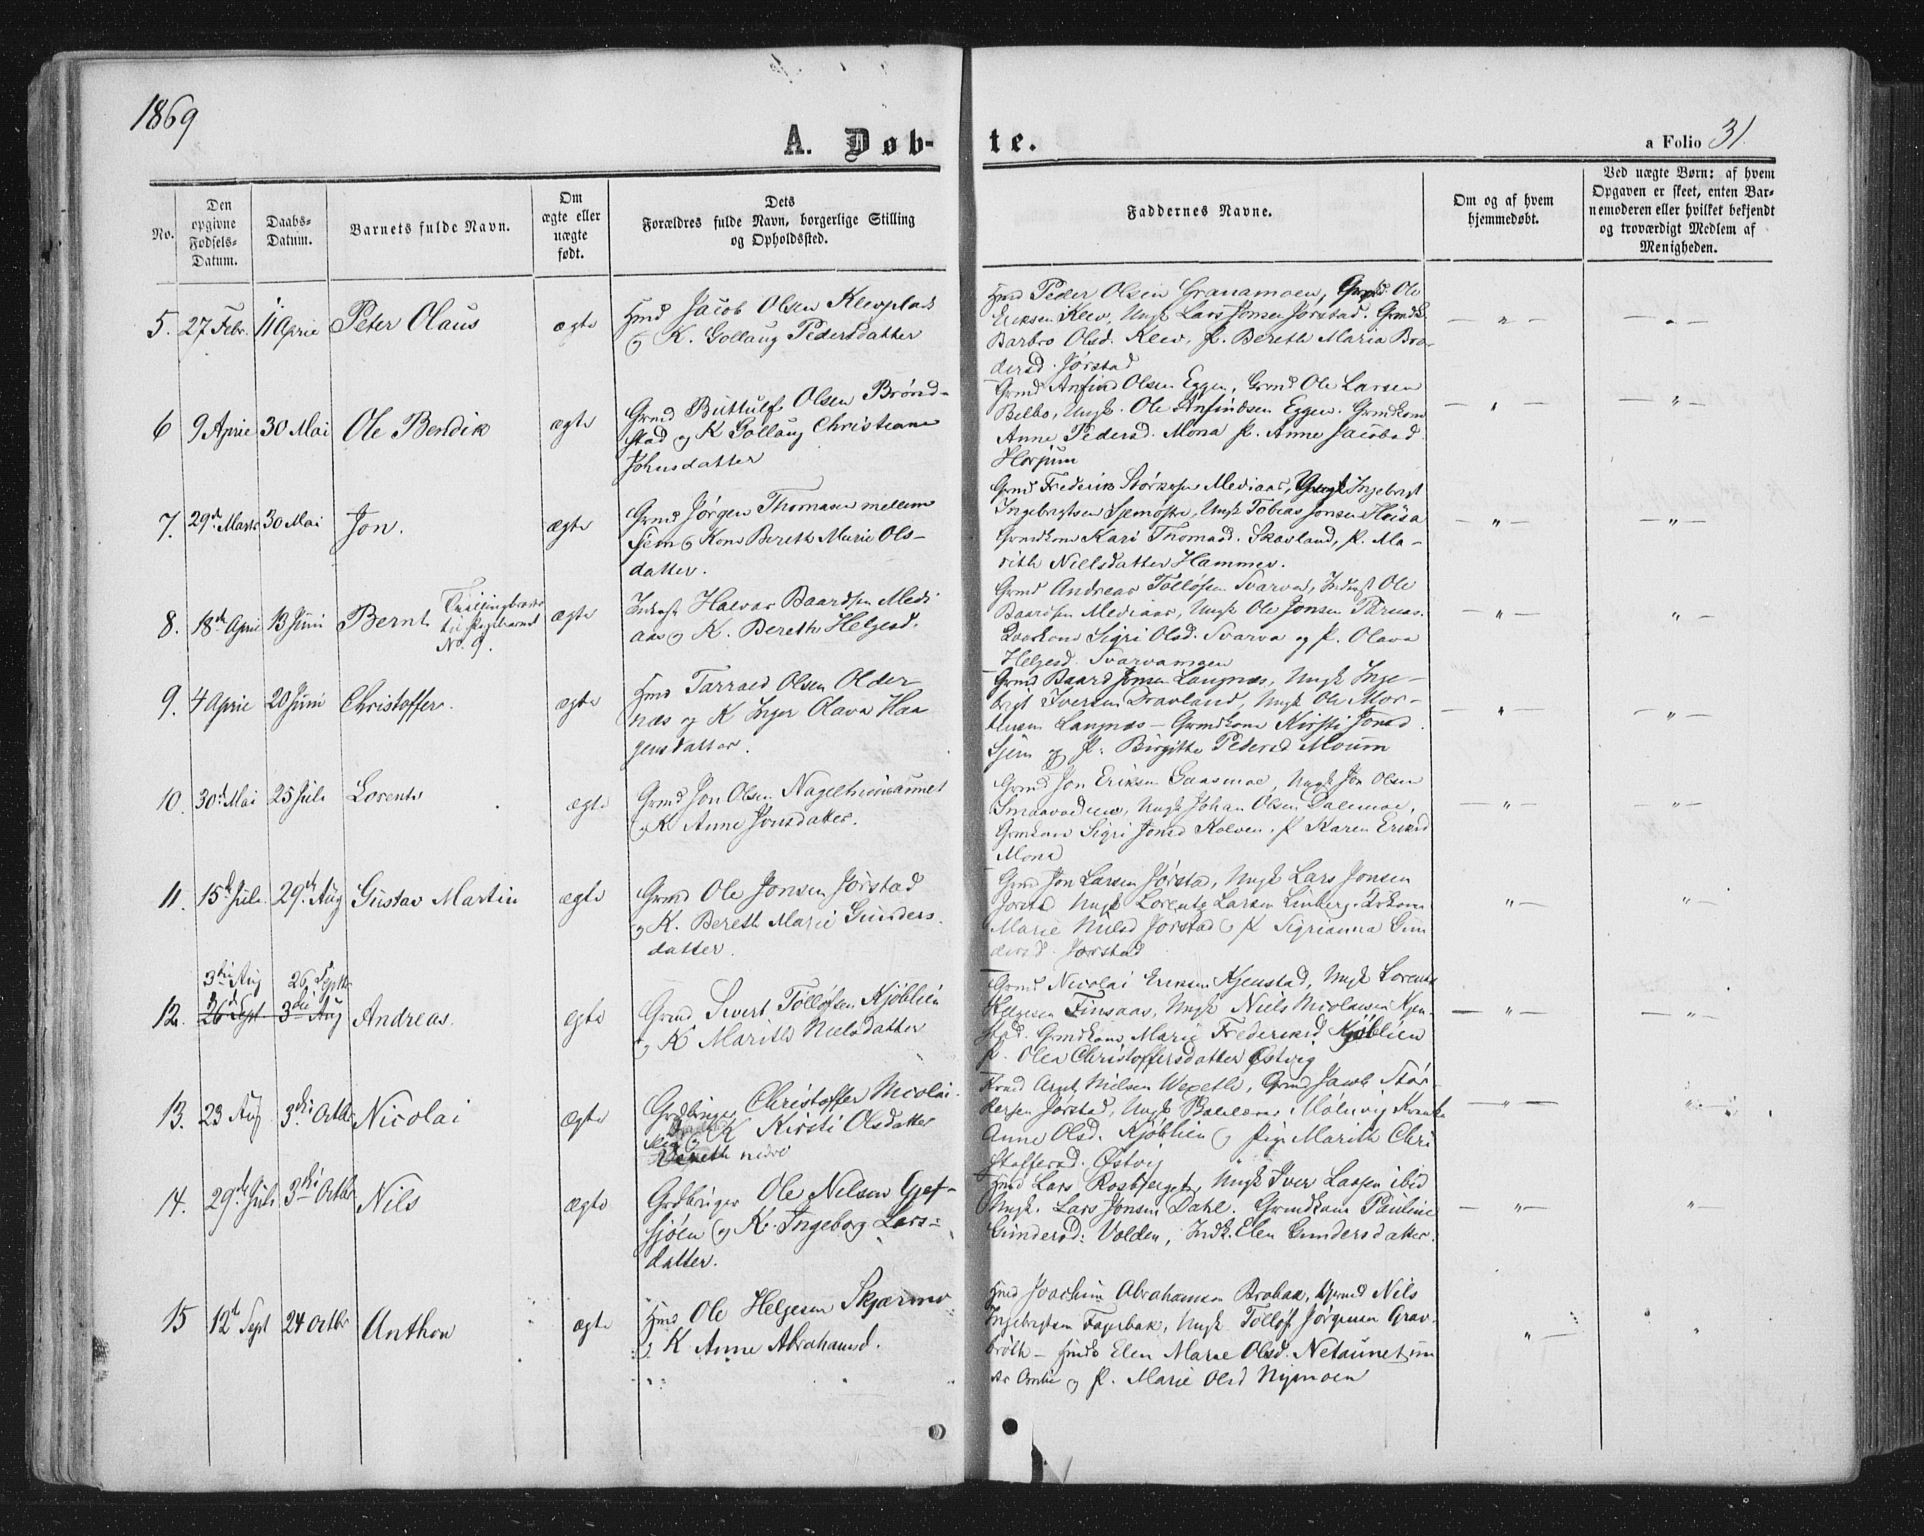 1869
A. Døb-
te.
a Folio 31.
No.
Den opgivne Fødsels-Datum.
Daabs-Datum.
Barnets fulde Navn.
Om ægte eller uægte født.
Dets Forældres fulde Navn, borgerlige Stilling og Opholdssted.
Faddernes Navne.
Om og af hvem hjemmedøbt.
Ved uægte Børn: af hvem Opgaven er skeet, enten Barnemoderen eller hvilket bekjendt og troværdigt Medlem af Menigheden.
5. 27 Febr. 11 April Peter Olaus ægte
Hmd Jacob Olsen Klevplads
og K. Gollaug Pedersdatter
Hmd Peder Olsen Granamoen, Ole
Eriksen Klev, Ungk Lars Jonsen Jørstad. Grmdk
Barbro Olsd. Klev, P. Bereth Maria Bro-
dersd. Jørstad
6 9 April 30 Mai Ole Bendik ægte
Grmd Buttulf Olsen Brønd-
stad og K Gollaug Christiane
Johnsdatter
Grmd Anfind Olsen Eggen, Grmd Ole Larsen
Belbo, Ungk. Ole Anfindsen Eggen. Grmdkone
Anne Pedersd. Mona P. Anne Jacobsd
Horjum
7. 29d Marts 30 Mai Jon. ægte
Grmd Jørgen Thomasen mellem
Sjem og Kone Bereth Marie Ols-
datter.
Grmd Frederik Størkersen Mediaas, Ungk Ingebrigt
Ingebrigtsen Semoste, Ungk Tobias Jonsen Høisa
Grmdkone Kari Thomasd. Skavland, P. Ma-
rith Nielsdatter Hammer.
8. 18d April 13 Juni Bernt
No. 9.
ægte
Inderst Halvar Baardsen Medi
aas og K. Bereth Helgesd.
Grmd Andreas Tølløfsen Svarva, Inderst Ole
Baardsen Mediaas, Ungk Ole Jonsen
Sigri Olsd. Svarva og P. Olava
Helgesd. Svarvamoen
9. 4 April 20 Juni Christoffer. ægte
Hmd Tarrald Olsen Older
næs og K Inger Olava Haa
gensdatter.
Grmd Baard Jonsen Langnæs, Ungk Inge-
brigt Iversen Dravland, Ungk Ole Mor-
tensen Langnæs - Grmdkone Kirsti Jonsd.
Sjem og P. Birgitte Pedersd Moum
10. 30d Mai 25 Juli Lorents ægte
Grmd Jon Olsen Nagelhusaunet
og K Anne Jonsdatter.
Grmd Jon Eriksen Gaasmoe, Ungk Jon Olsen
Ungk Johan Olsen Dalemoe,
Grmkone Sigri Jonsd Kolven. P Karen Eriksd
Mona
11. 15d Juli 29d Aug Gustav Martin ægte
Grmd Ole Jonsen Jørstad
og K. Bereth Marie Gunders-
datter.
Grmd Jon Larsen Jørstad, Ungk Lars Jonsen
Jørstad Ungk Lorents Larsen Linberg.
Marie Nilsd Jørstad og P Sigrianna Gun
dersd. Jørstad
3die Aug 26 Septbr
12. 26d Sept 3die Aug Andreas. ægte
Grmd Sivert Tølløfsen Kjøblien
og K Marith Nielsdatter
Grmd Nicolai Eriksen Kjenstad, Ungk Lorents
Helgesen Finsaas, Ungk Niels Nicolaisen Kjen-
stad. Grmdkone Marie Frederiksd. Kjøblien
P. Olea Christoffersdatter Østvig
13. 23 Aug 3die Octbr Nicolai ægte
Grdbruger Christoffer Nicolai-
sen og K Kirsti Olsdatter
nedre
Grmd Arnt Nielsen Wexetli, Grmd Jacob Stør-
kersen Jørstad, Ungk Mølnvig
Anne Olsd. Kjøblien og Pige Marith Chri
stoffersd. Østvig
14. 29de Juli 3die Octbr Nils ægte
Grdbruger Ole Nelsen Gjef-
sjøen og K. Ingeborg Lars-
datter.
Hmd Lars Rosbjerget, Ungk Iver Lassen ibid
Ungk. Lars Jonsen Dahl. Grmdkone Pauline
Gundersd: Volden, Indk. Elen Gundersdatter.
15 12d Sept 24 Octbr Anthon ægte
Hmd Ole Helgesen Skjærmo
og K Anne Abrahamsd.
Hmd Joachim Abrahamsen Brobak, Grmd Nils
Ingebrigtsen Fagerbak, Ungk Tølløf Jørgensen Grav-
brøth - Elen Marie Olsd. Netaunet
og P. Marie Olsd Nymoen